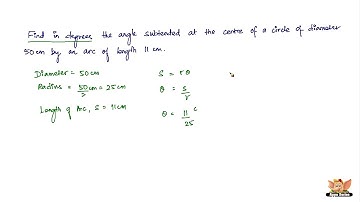 Find in degrees the angle subtended at the centre of a circle of diameter
50 cm by an arc of length 11 cm.
Diameter = 50 cm
Radius = 50/2 cm = 25 cm
Length of Arc, S = 11 cm
S = rθ
θ = S/r
θ = 11/25 ᶜ